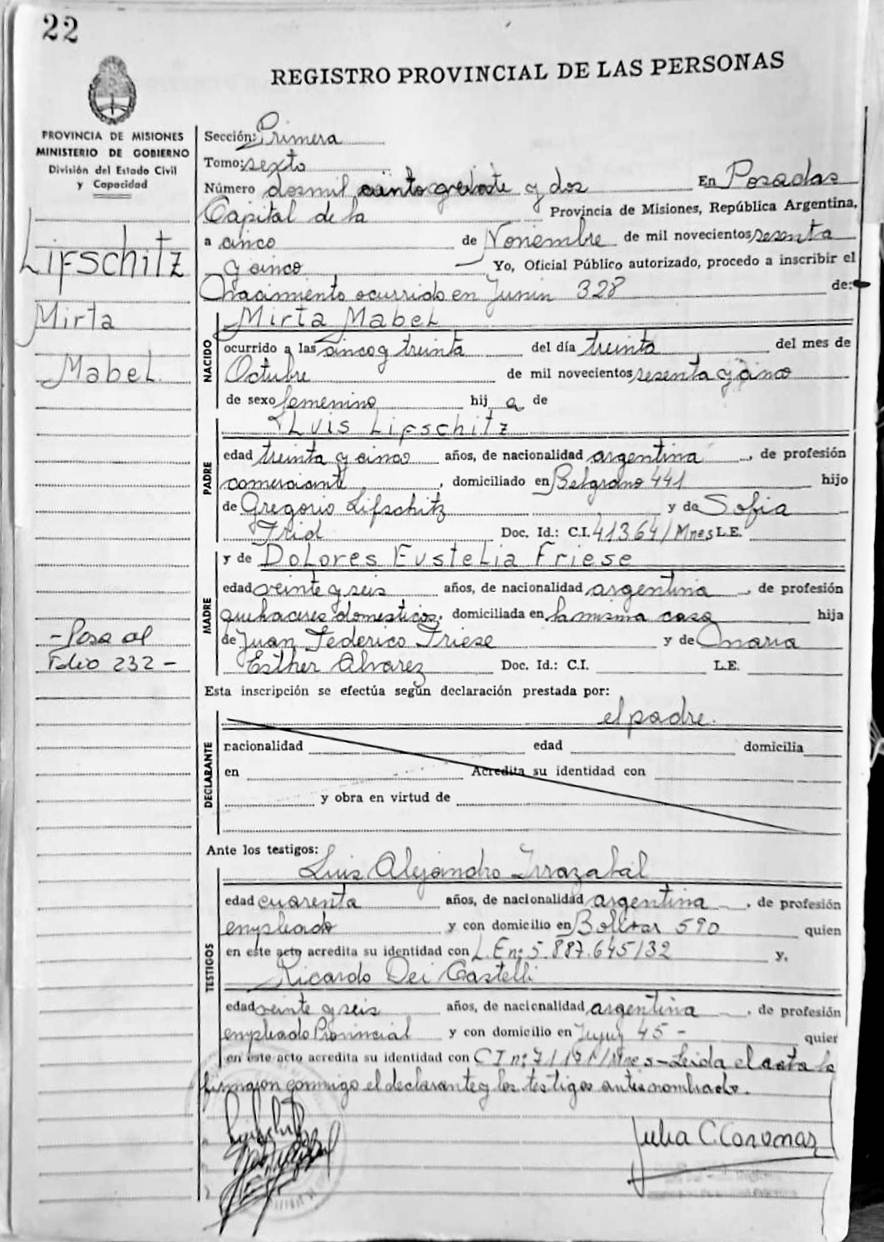 22
REGISTRO PROVINCIAL DE LAS PERSONAS
PROVINCIA DE MISIONES
MINISTERIO DE GOBIERNO
División del Estado Civil
y Capacidad
Lifschitz
Mirta
Mabel
- Pasa al
Folio 232 -
Sección: Primera
Tomo: sexto
Número dosmil y dos En Posadas
Capital de la Provincia de Misiones, República Argentina,
a cinco de Noviembre de mil novecientos sesenta
y cinco Yo, Oficial Público autorizado, procedo a inscribir el
Nacimiento ocurrido en Junin 328 de:
NACIDO
Mirta Mabel
ocurrido a las cinco y treinta del día treinta del mes de
Octubre de mil novecientos sesenta y cinco
de sexo femenino hij a de
PADRE
Luis Lifschitz
edad treinta y cinco años, de nacionalidad argentina, de profesión
comerciante, domiciliado en Belgrano 441 hijo
de Gregorio Lifschitz y de Sofia
Frid Doc. Id.: C.I. 41364/Mnes L.E.
MADRE
y de Dolores Eustelia Friese
edad veinte y seis años, de nacionalidad argentina, de profesión
quehaceres domesticos, domiciliada en la misma casa hija
de Juan Federico Friese y de Maria
Esther Alvarez Doc. Id.: C.I. L.E.
Esta inscripción se efectúa según declaración prestada por:
el padre.
DECLARANTE
nacionalidad edad domicilia
en Acredita su identidad con
y obra en virtud de
Ante los testigos:
Luis Alejandro Irrazabal
TESTIGOS
edad cuarenta años, de nacionalidad argentina, de profesión
empleado y con domicilio en Bolivar 590 quien
en este acto acredita su identidad con L.E nº 5.887.645/32 y,
Ricardo Dei Castelli
edad veinte y seis años, de nacionalidad argentina, de profesión
empleado Provincial y con domicilio en Jujuy 45 - quien
en este acto acredita su identidad con CI nº /Mnes - Leida el acta la
firmaron conmigo el declarante y los testigos antes nombrado.
Julia C.